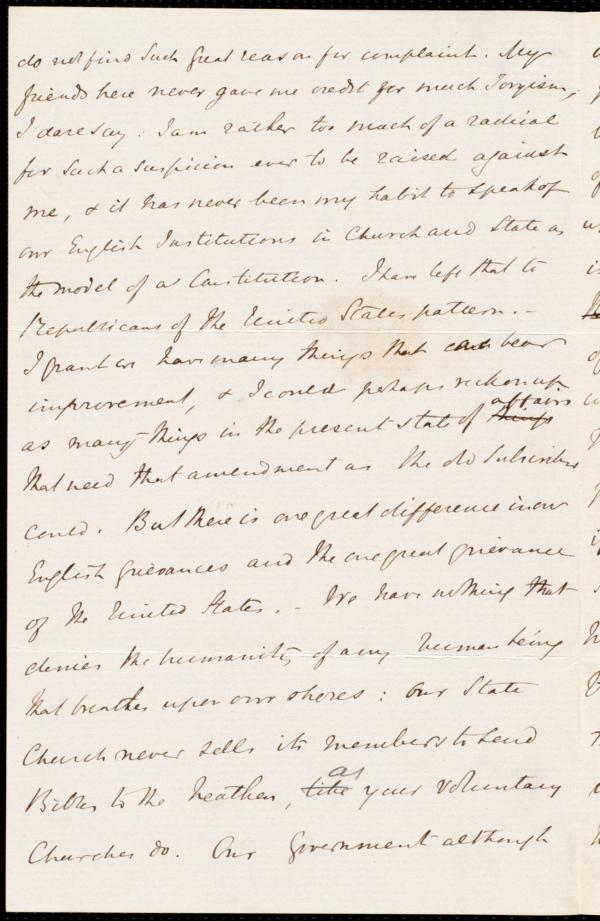 do not find such great reason for complaint. My
friends here never gave me credit for much Toryism,
I dare say: I am rather too much of a radical
for such a suspicion ever to be raised against
me, & it has never been my habit to speak of
our English Institutions in Church and State as
the model of a Constitution. I have left that to
Republicans of the United States pattern. –
I grant we have many things that can bear
improvement, & I could perhaps reckon up
affairs
as many things in the present state of things
that need that amendment as the old Subscriber
could. But there is one great difference in our
English grievances and the one great grievance
of the United States. – We have nothing that
denies the humanity of any human being
that breathes upon our shores: Our State
Church never sells its members to send
as
Bibles to the heathen, like your voluntary
Churches do. Our Government although